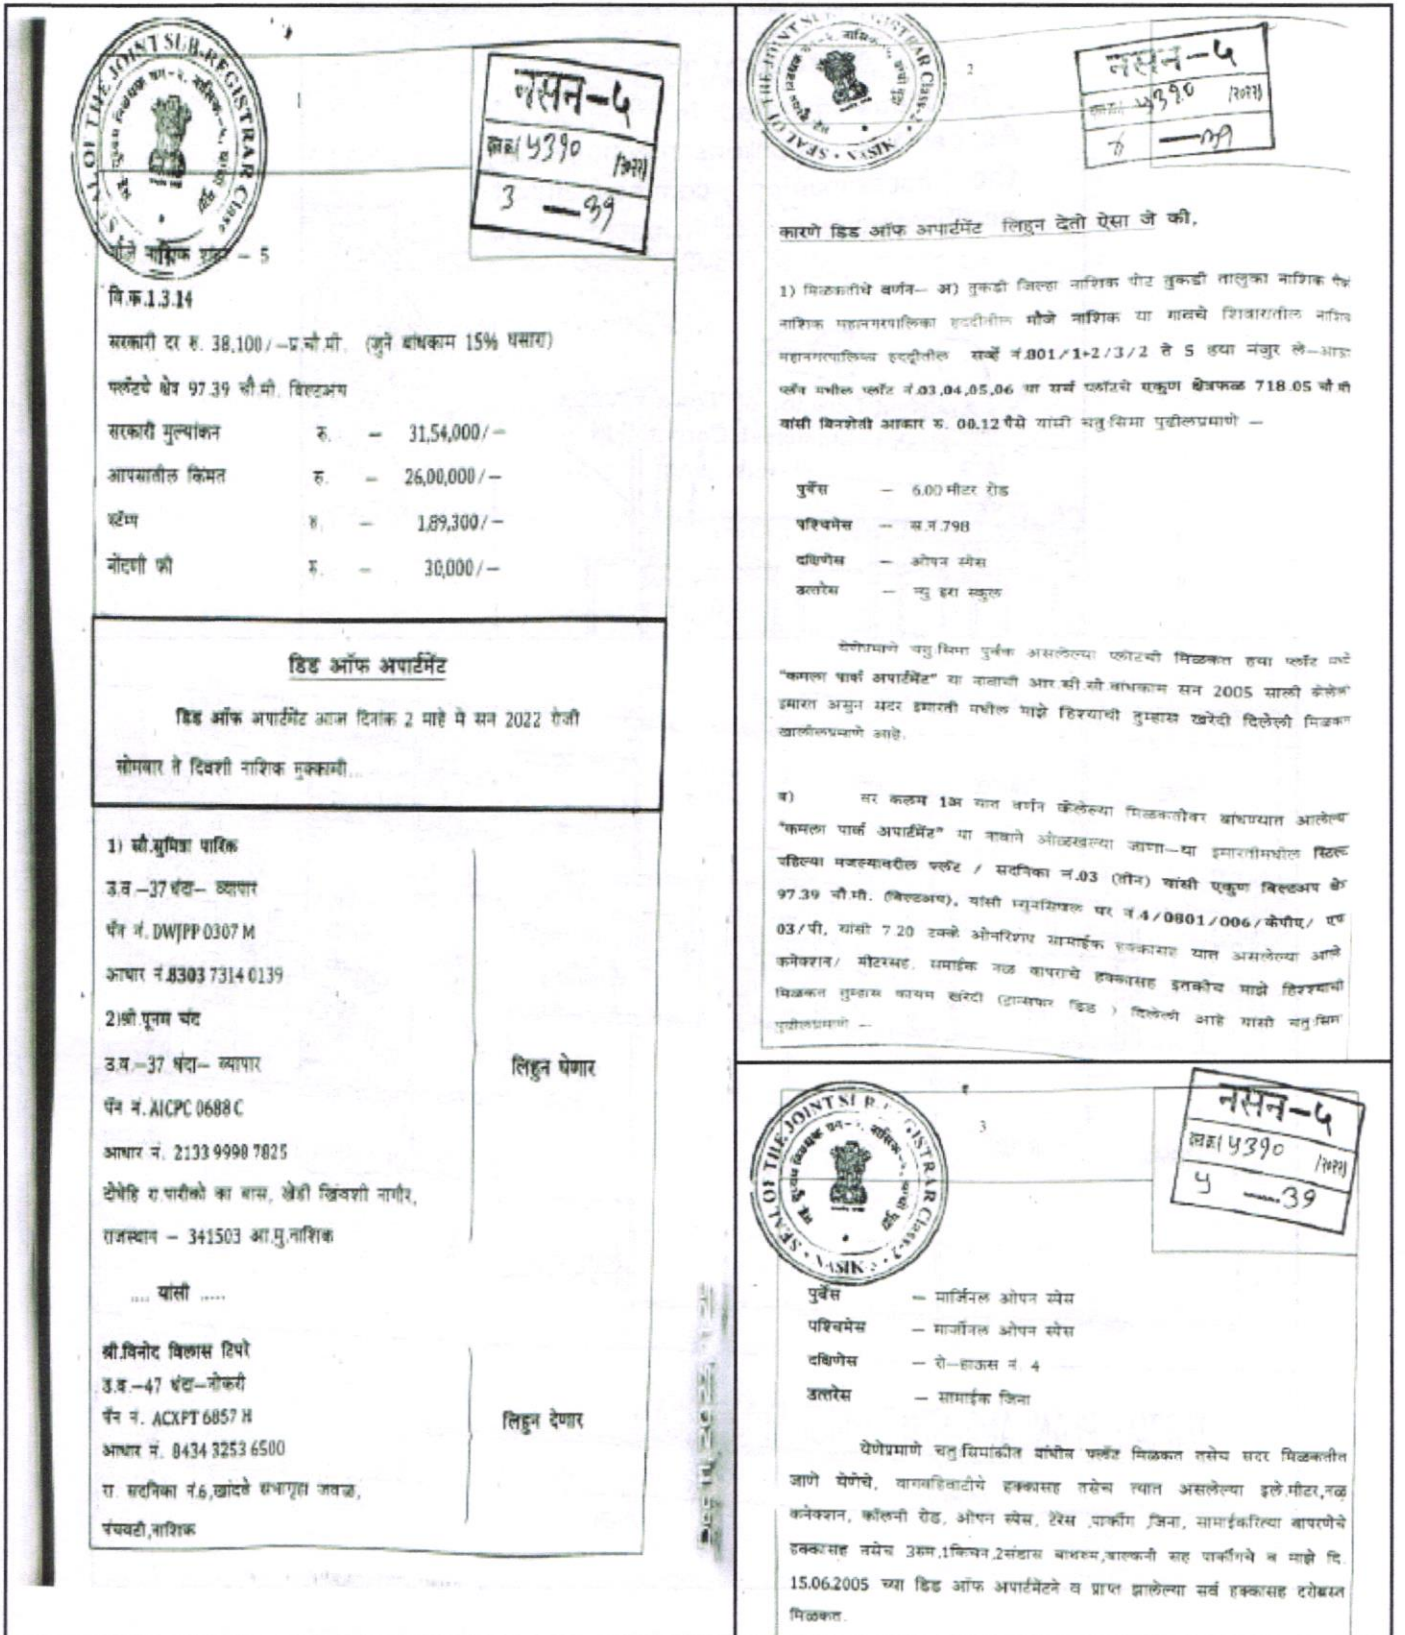 SEAL OF THE JOINT SUB-REGISTRAR Class
नसन-५
दस्त क्र. ५३९० /२०२२
३ — ३९
मौजे नाशिक शहर – 5
वि.क्र.1.3.14
सरकारी दर रु. 38,100/–प्र.चौ.मी. (जुने बांधकाम 15% घसारा)
फ्लॅटचे क्षेत्र 97.39 चौ.मी. बिल्टअप
सरकारी मुल्यांकन रु. – 31,54,000/–
आपसातील किंमत रु. – 26,00,000/–
स्टॅम्प रु. – 1,89,300/–
नोंदणी फी रु. – 30,000/–
डिड ऑफ अपार्टमेंट
डिड ऑफ अपार्टमेंट आज दिनांक 2 माहे मे सन 2022 रोजी
सोमवार ते दिवशी नाशिक मुक्कामी...
1) सौ.सुमित्रा पारिक
उ.व.–37 धंदा– व्यापार
पॅन नं. DWJPP 0307 M
आधार नं.8303 7314 0139
2)श्री.पूनम चंद
उ.व.–37 धंदा– व्यापार
लिहुन घेणार
पॅन नं. AICPC 0688 C
आधार नं. 2133 9998 7825
दोघेहि रा.पारीको का बास, खेडी खिंवशी नागौर,
राजस्थान – 341503 आ.मु.नाशिक
.... यांसी .....
श्री.विनोद विलास टिपरे
उ.व.–47 धंदा–नोकरी
पॅन नं. ACXPT 6857 H
लिहुन देणार
आधार नं. 8434 3253 6500
रा. सदनिका नं.6,खांदवे सभागृहा जवळ,
पंचवटी,नाशिक
SEAL OF THE JOINT SUB-REGISTRAR Class-2 NASIK
2
नसन-५
५३९० /२०२२
— ३९
कारणे डिड ऑफ अपार्टमेंट लिहुन देतो ऐसा जे की,
1) मिळकतीचे वर्णन– अ) तुकडी जिल्हा नाशिक पोट तुकडी तालुका नाशिक पैकी
नाशिक महानगरपालिका हददीतील मौजे नाशिक या गावचे शिवारातील नाशिक
महानगरपालिका हददीतील सर्व्हे नं.801/1+2/3/2 ते 5 हया मंजुर ले–आऊट
प्लॅन मधील प्लॉट नं.03,04,05,06 या सर्व प्लॉटचे एकुण क्षेत्रफळ 718.05 चौ.मी
यांसी बिनशेती आकार रु. 00.12 पैसे यांसी चतु:सिमा पुढीलप्रमाणे –
पुर्वेस – 6.00 मीटर रोड
पश्चिमेस – स.नं.798
दक्षिणेस – ओपन स्पेस
उत्तरेस – न्यु इरा स्कुल
येणेप्रमाणे चतु:सिमा पुर्वक असलेल्या प्लॉटची मिळकत हया प्लॉट मध्ये
"कमला पार्क अपार्टमेंट" या नावाची आर.सी.सी.बांधकाम सन 2005 साली केलेली
इमारत असुन सदर इमारती मधील माझे हिश्याची तुम्हास खरेदी दिलेली मिळकत
खालीलप्रमाणे आहे.
ब) सर कलम 1अ यात वर्णन केलेल्या मिळकतीवर बांधण्यात आलेल्या
"कमला पार्क अपार्टमेंट" या नावाने ओळखल्या जाणा–या इमारतीमधील स्टिल्ट
पहिल्या मजल्यावरील फ्लॅट / सदनिका नं.03 (तीन) यांसी एकुण बिल्टअप क्षेत्र
97.39 चौ.मी. (बिल्टअप), यांसी म्युनसिपल घर नं.4/0801/006/केपीए/ एफ
03/पी, यांसी 7.20 टक्के ओनरशिप सामाईक हक्कासह यात असलेल्या
कनेक्शन/ मीटरसह, समाईक नळ वापराचे हक्कासह इतकीच माझे हिश्श्याची
मिळकत तुम्हास कायम खरेदी (ट्रान्सफर डिड ) दिलेली आहे यांसी चतु:सिमा
पुढीलप्रमाणे –
SEAL OF THE JOINT SUB-REGISTRAR Class-2 NASIK
3
नसन-५
दस्त क्र. ५३९० /२०२२
५ — ३९
पुर्वेस – मार्जिनल ओपन स्पेस
पश्चिमेस – मार्जीनल ओपन स्पेस
दक्षिणेस – रो–हाऊस नं. 4
उत्तरेस – सामाईक जिना
येणेप्रमाणे चतु:सिमांकीत बांधीव फ्लॅट मिळकत तसेच सदर मिळकतीत
जाणे येणेचे, वागवहिवाटीचे हक्कासह तसेच त्यात असलेल्या इले.मीटर,नळ
कनेक्शन, कॉलनी रोड, ओपन स्पेस, टेरेस ,पार्कींग ,जिना, सामाईकरित्या वापरणेचे
हक्कासह तसेच 3रुम,1किचन,2संडास बाथरुम,बाल्कनी सह पार्कींगचे व माझे दि.
15.06.2005 च्या डिड ऑफ अपार्टमेंटने व प्राप्त झालेल्या सर्व हक्कासह दरोबस्त
मिळकत.